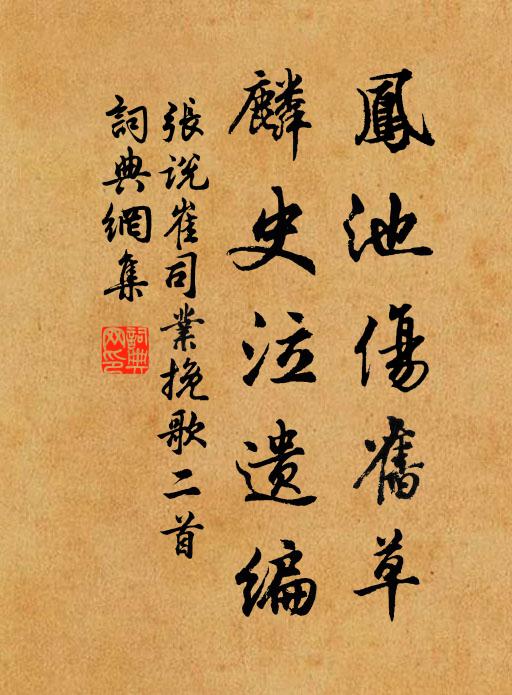 鳳池傷舊草
麟史泣遺編
張説崔司業挽歌二首
詞典網集
詞典網印